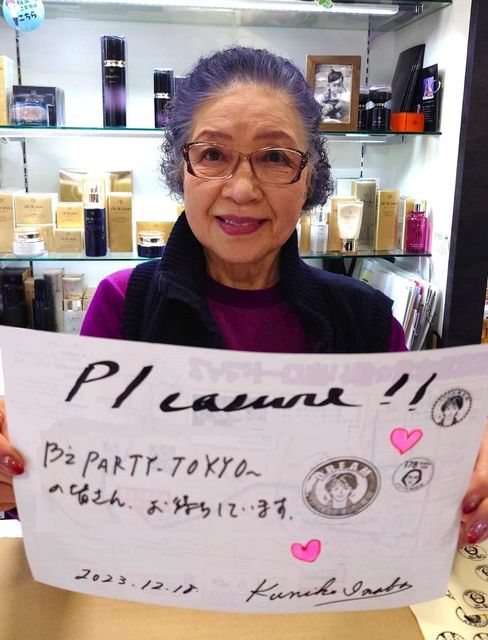 こちら
Pleasure!!
B'z PARTY-TOKYO~
の皆さん、お待ちしています。
DREAM
178
2023.12.18
Kuniko Inaba